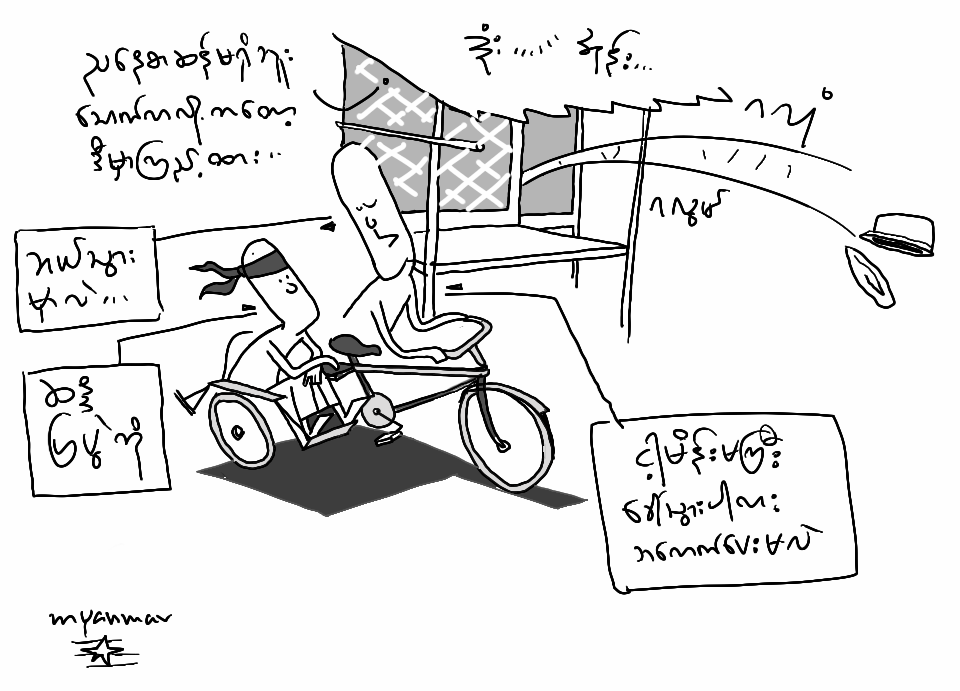 ညနေစာဆန်မရှိဘူး
သောက်ကလို.ကတော့
ဒီမှာကြည့်ထား...
ဒုံး...... ဒိုင်း...
ဂလုံ
ဂလွမ်
ဘယ်သွား
မှာလဲ...
ဆန္ဒ
ပြပွဲကို
ငါ့မိန်းမကြီး
ခေါ်သွားပါလား
အခေါက်ပေးမယ်
myanmar